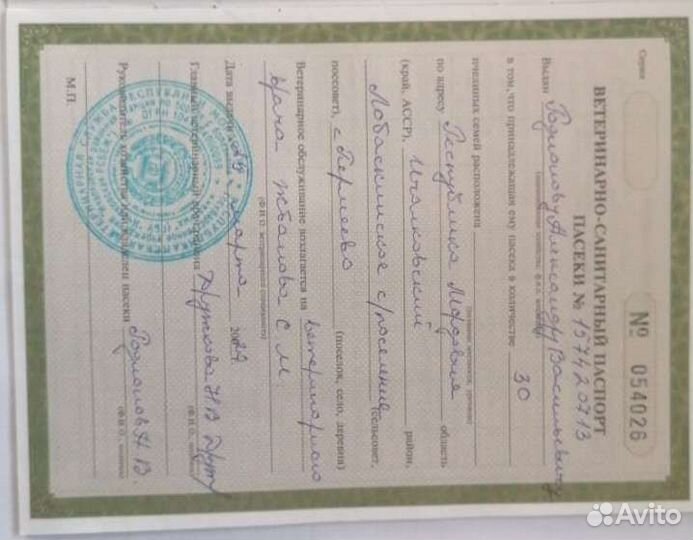 Серия
№ 054026
ВЕТЕРИНАРНО-САНИТАРНЫЙ ПАСПОРТ
ПАСЕКИ № 157420713
Выдан Родионову Александру Васильевичу
в том, что принадлежащая ему пасека в количестве 30
пчелиных семей расположена
по адресу Республика Мордовия область
(край, АССР), Ичалковский район,
Лобаскинское с/поселение (сельсовет,
поссовет), с Пермеево (поселок, село, деревня)
Ветеринарное обслуживание возлагается на ветеринарного
врача Жбанова С М.
(Ф.И.О. ветеринарного специалиста)
Дата выдачи марта 20 24
Главный ветеринарный Дружкова Н В
(Ф.И.О., подпись)
Руководитель хозяйства пасеки Родионов А. В.
(Ф.И.О., подпись)
М.П.
Avito